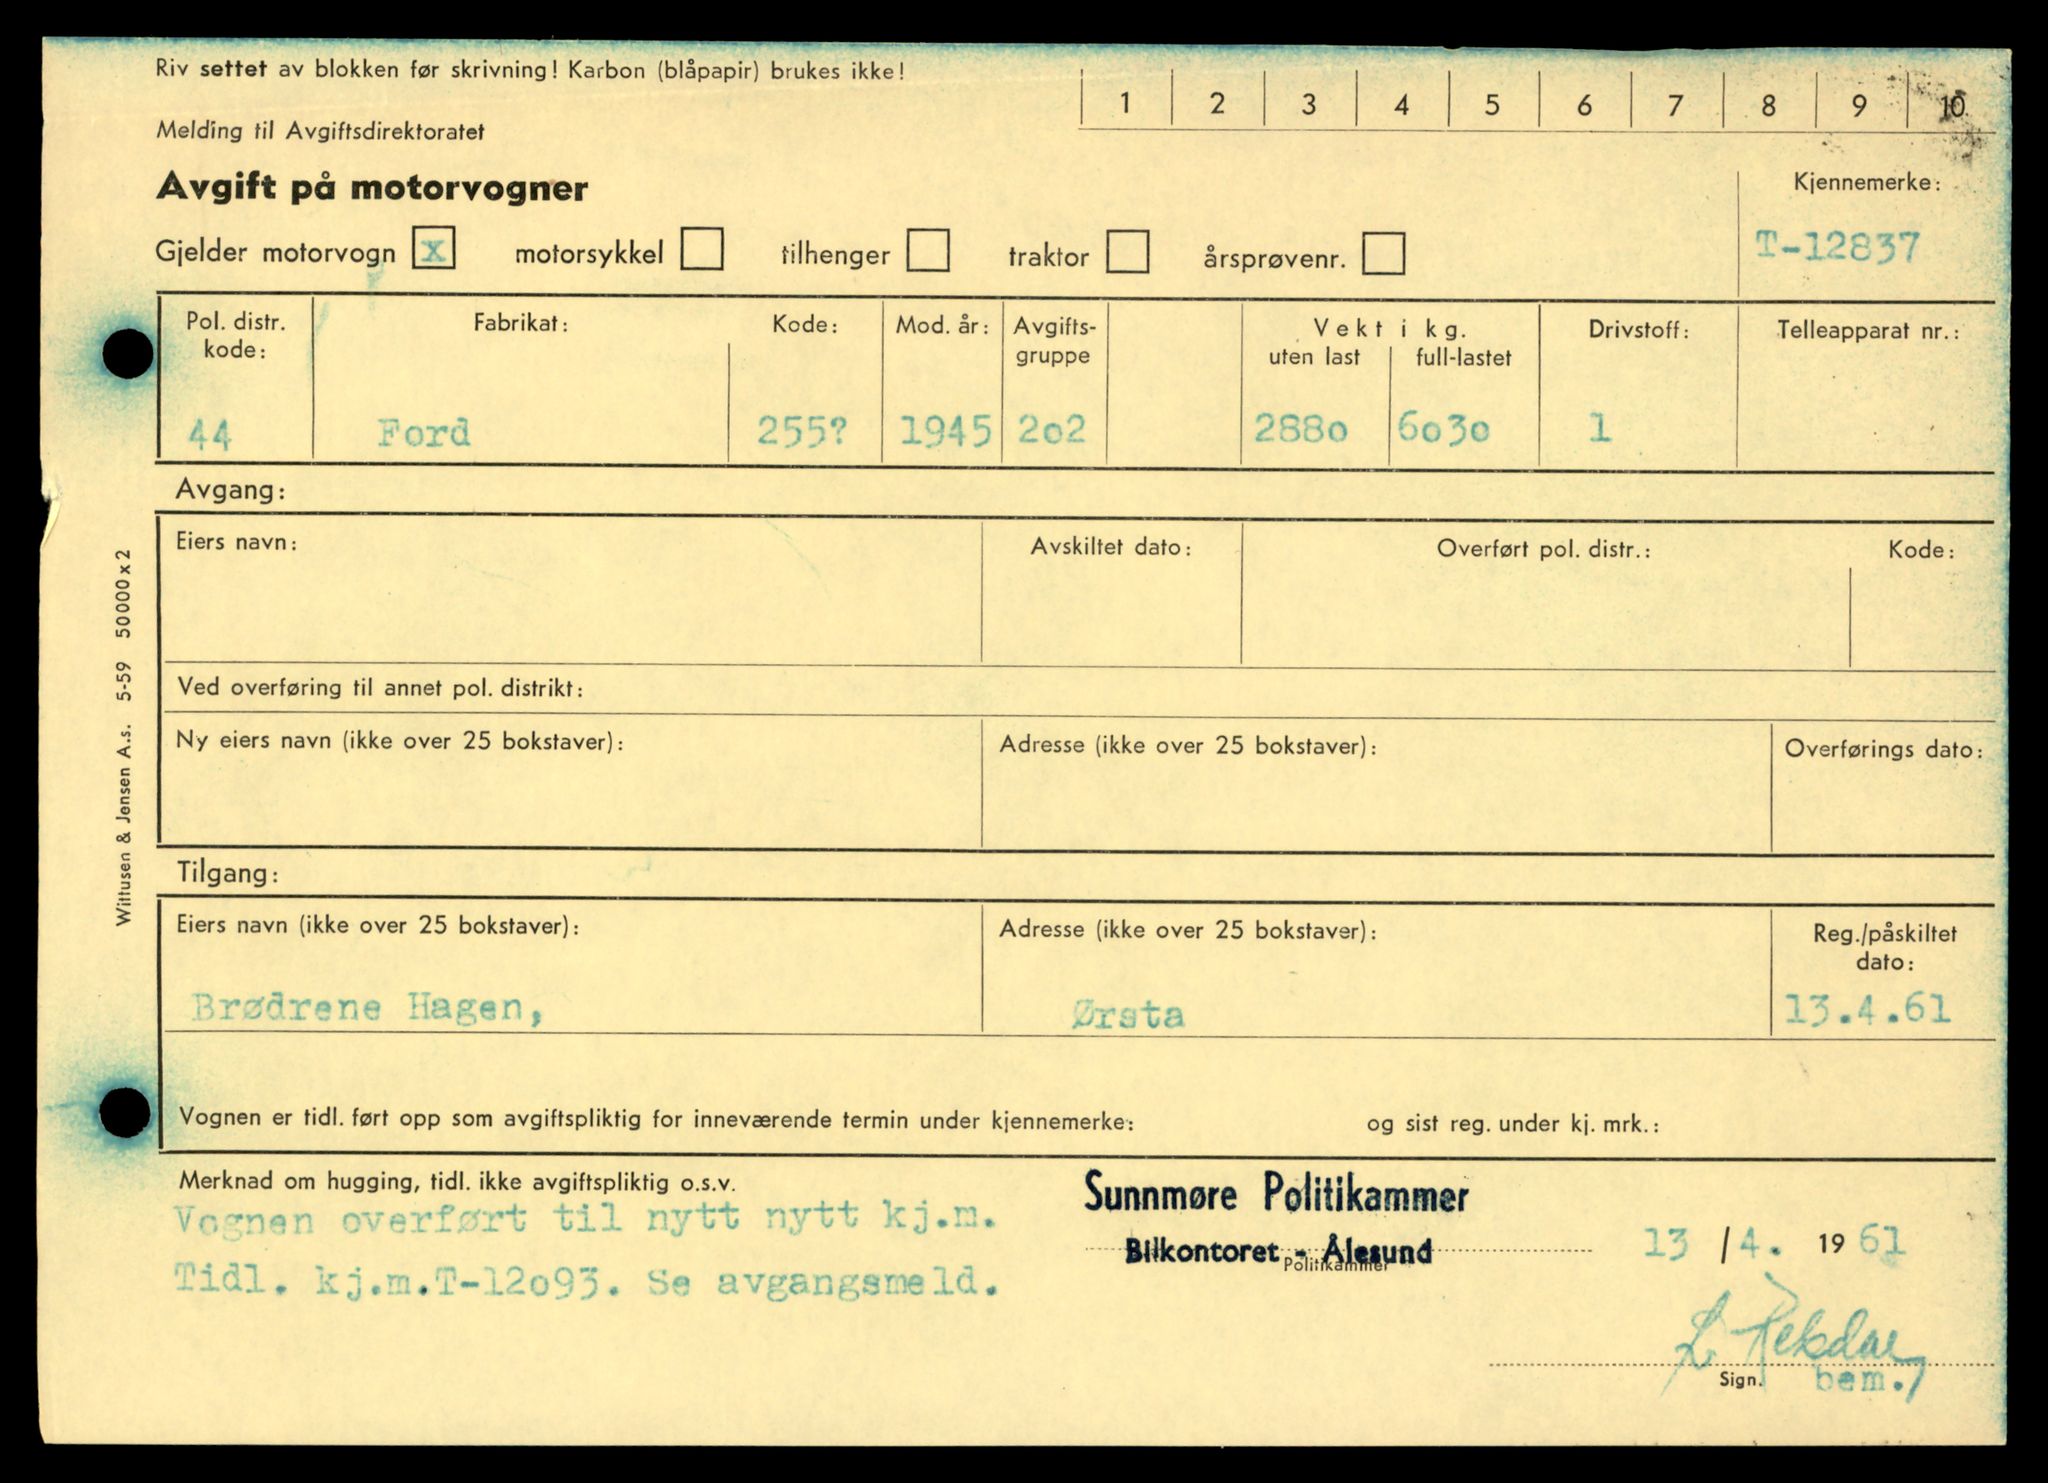 Riv settet av blokken før skrivning! Karbon (blåpapir) brukes ikke!
1 2 3 4 5 6 7 8 9 10
Melding til Avgiftsdirektoratet
Avgift på motorvogner
Kjennemerke:
Gjelder motorvogn x motorsykkel tilhenger traktor årsprøvenr.
T-12837
Pol. distr. kode: Fabrikat: Kode: Mod. år: Avgifts-gruppe Vekt i kg. uten last full-lastet Drivstoff: Telleapparat nr.:
44 Ford 255? 1945 2o2 288o 6o3o 1
Avgang:
Eiers navn: Avskiltet dato: Overført pol. distr.: Kode:
Ved overføring til annet pol. distrikt:
Ny eiers navn (ikke over 25 bokstaver): Adresse (ikke over 25 bokstaver): Overførings dato:
Tilgang:
Eiers navn (ikke over 25 bokstaver): Adresse (ikke over 25 bokstaver): Reg./påskiltet dato:
Brødrene Hagen, Ørsta 13.4.61
Vognen er tidl. ført opp som avgiftspliktig for inneværende termin under kjennemerke: og sist reg. under kj. mrk.:
Merknad om hugging, tidl. ikke avgiftspliktig o.s.v.
Vognen overført til nytt nytt kj.m.
Tidl. kj.m.T-12o93. Se avgangsmeld.
Sunnmøre Politikammer
Bilkontoret - Ålesund
Politikammer
13 / 4. 19 61
L. Rekdal
Sign. bem.
Wittusen & Jensen A.s. 5-59 50000 x 2